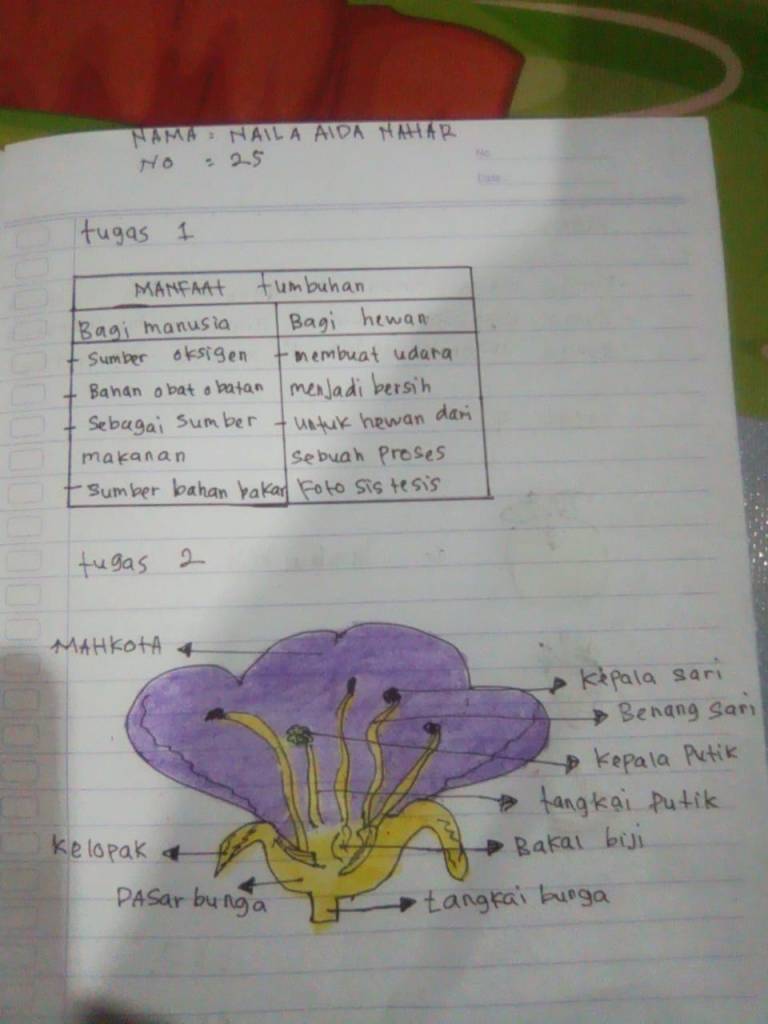 NAMA : NAILA AIDA NAHAR
NO : 25
No
Date
tugas 1
MANFAAT tumbuhan
Bagi manusia
Bagi hewan
- Sumber oksigen
- membuat udara
- Bahan obat obatan
menjadi bersih
- Sebagai Sumber
- untuk hewan dari
makanan
sebuah Proses
- Sumber bahan bakar
Foto sistesis
tugas 2
MAHKOTA
Kepala sari
Benang sari
Kepala Putik
tangkai Putik
Kelopak
Bakal biji
DASar bunga
tangkai bunga